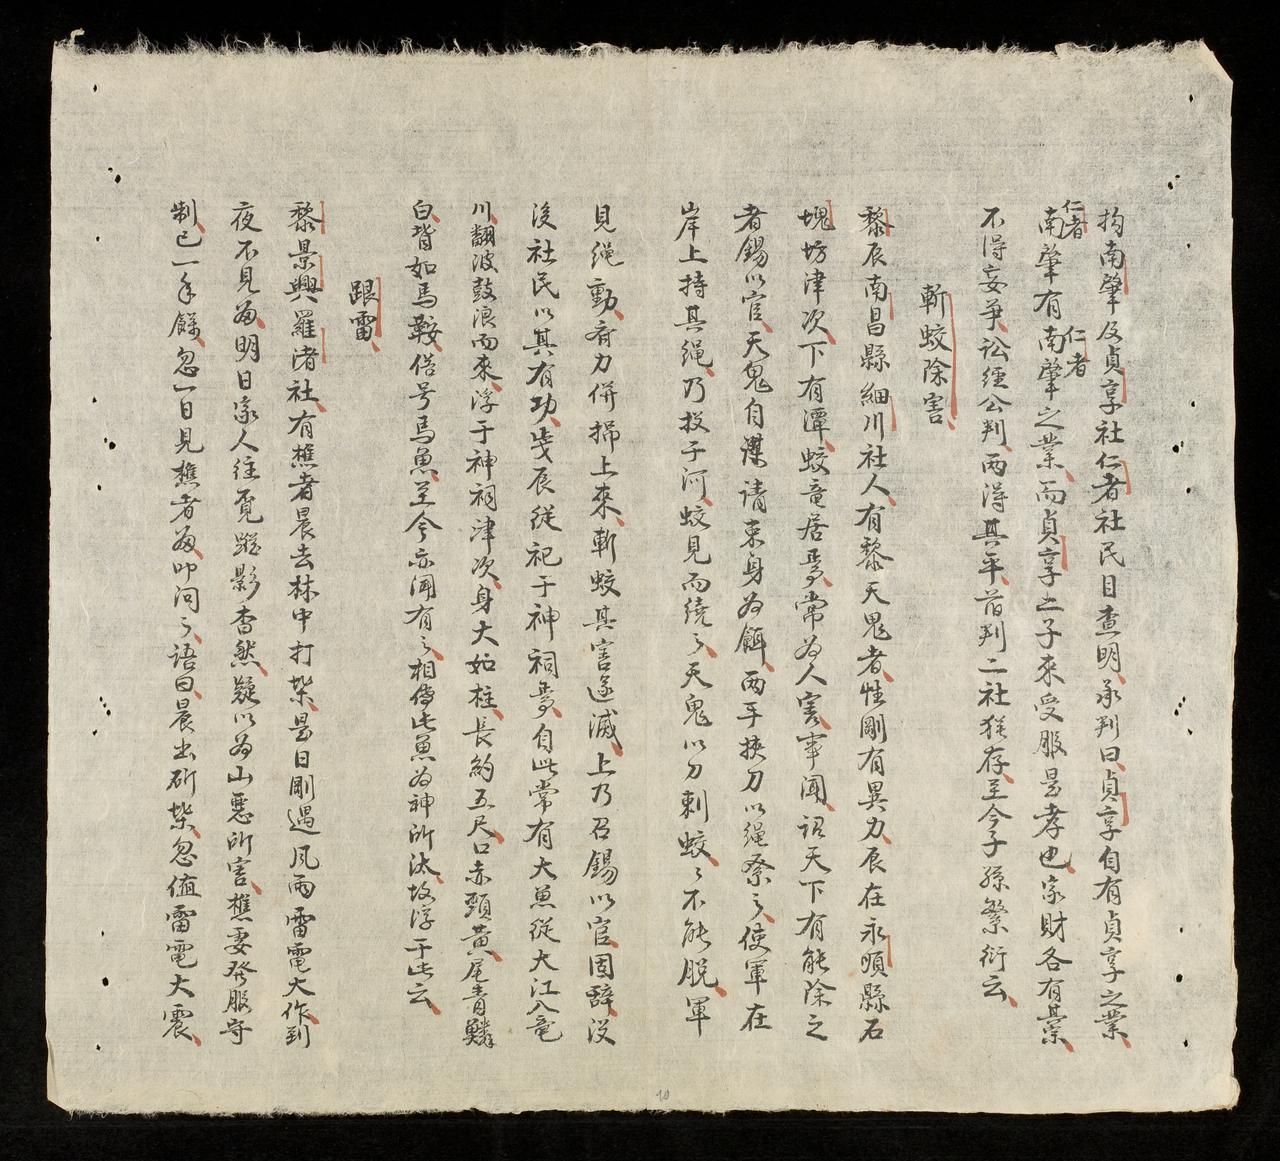 拘南肇及貞享社仁者社民目查明、承判曰、貞享自有貞享之業、
仁者 仁者
南肇有南肇之業、而貞享之子來受服是孝也、家財各有其業、
不得妄爭、訟經公判、兩得其平、前判二社猶存、至今子孫繁衍云、
斬蛟除害、
黎辰南昌縣細川社人、有黎天鬼者、性剛有異力、辰在永順縣石
塊坊津次、下有潭、蛟竜居焉、常為人害、事聞、詔天下有能除之
者錫以官、天鬼自謀請束身為餌、兩手挾刀以繩祭之、使軍在
岸上持其繩、乃投于河、蛟見而繞之、天鬼以刀刺蛟、〻不能脫、軍
見繩動、齊力併掃上來、斬蛟其害遂滅、上乃召錫以官、固辞、没
後社民以其有功、歲辰從祀于神祠焉、自此常有大魚從大江入竜
川、翻波鼓浪而來、浮于神祠津次、身大如柱、長約五尺、口赤頸黃、尾青鱗
白、背如馬鞍、俗号馬魚、至今亦聞有之、相傳此魚為神所汰、故浮于此云、
跟雷、
黎景興羅渚社、有樵者晨去林中打柴、是日剛遇風雨雷電大作、到
夜不見為、明日家人往覓、蹤影杳然、疑以為山惡所害、樵妻發服守
制、已一年餘、忽一日見樵者為、叩問之、語曰、晨出斫柴、忽值雷電大震、